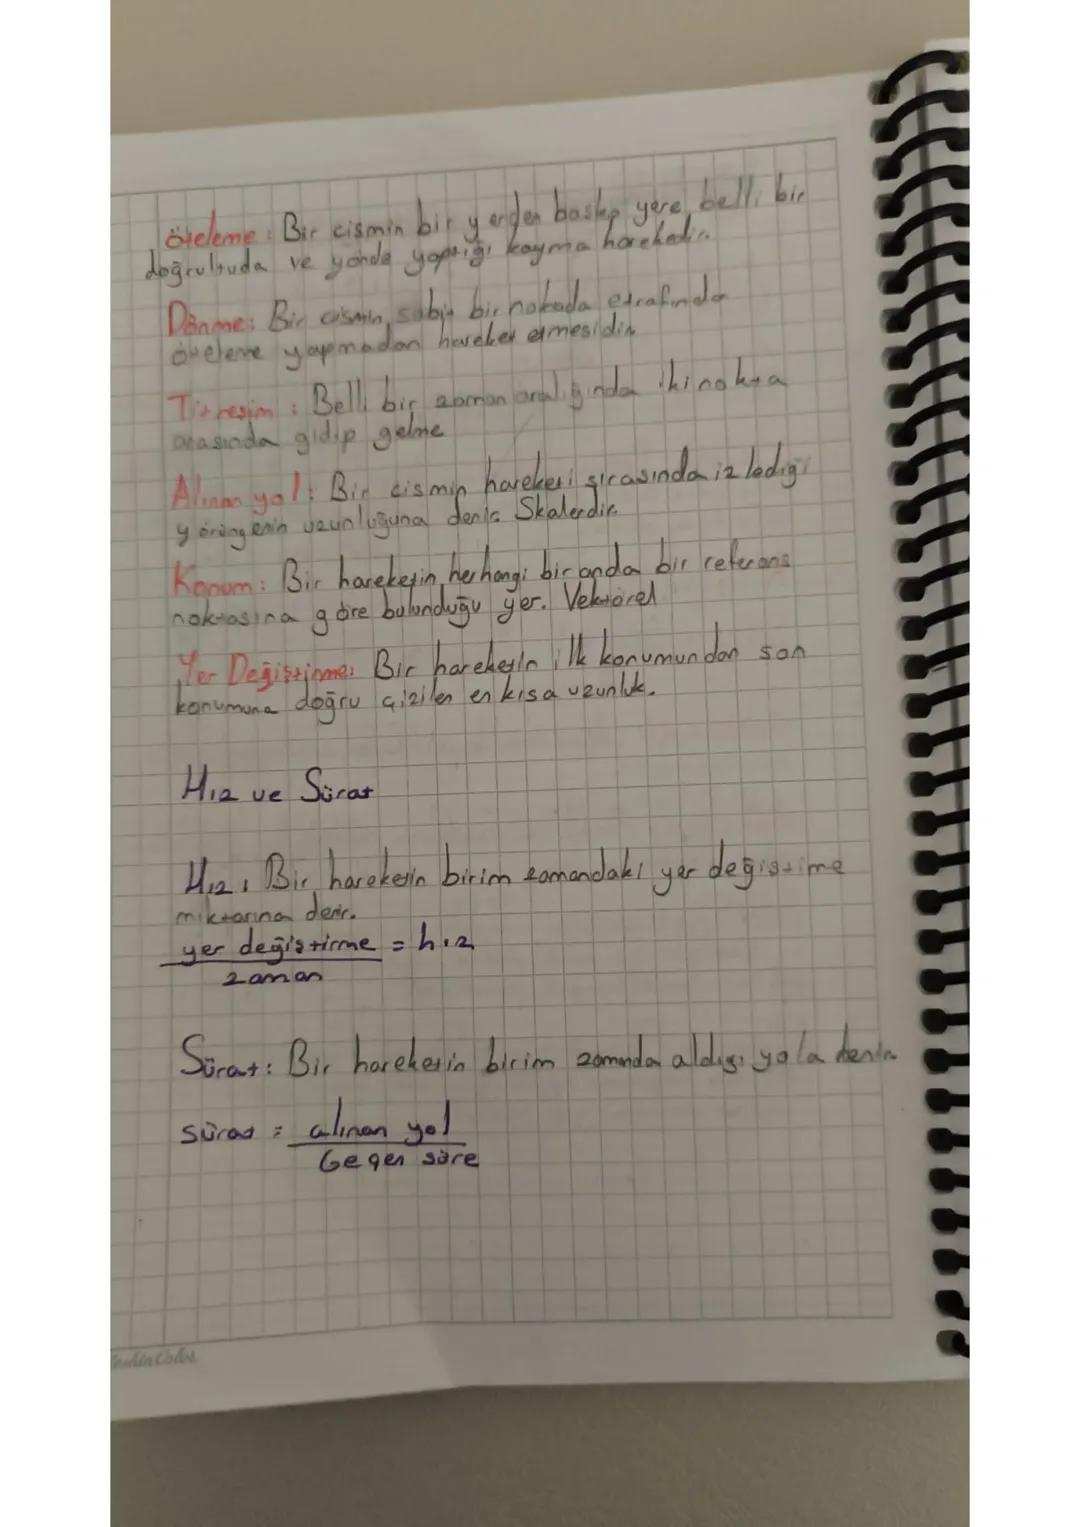 öteleme: Bir cismin bir yerden başka yere, belli bir
doğrultuda ve yönde yaptığı kayma hareketir.
Dönme: Bir cismin, sabit bir noktada etrafında
öteleme yapmadan hareket etmesidir
Titreşim: Belli bir zaman aralığında iki nokta
arasında gidip gelme
Alınan yol: Bir cismin hareketi sırasında izlediği
yörüngenin uzunluğuna denir. Skalerdir.
Konum: Bir hareketin, herhangi bir anda bir referans
noktasına göre bulunduğu yer. Vektörel
Yer Değiştirme: Bir hareketin ilk konumundan son
konumuna doğru çizilen en kısa uzunluk.
Hız ve Sürat
Hız: Bir hareketin birim zamandaki yer değiştime
miktarına denir.
yer değiştirme = hız
zaman
Sürat: Bir hareketin birim zamnda aldığı yola denir.
sürat = alınan yol
Geçen süre